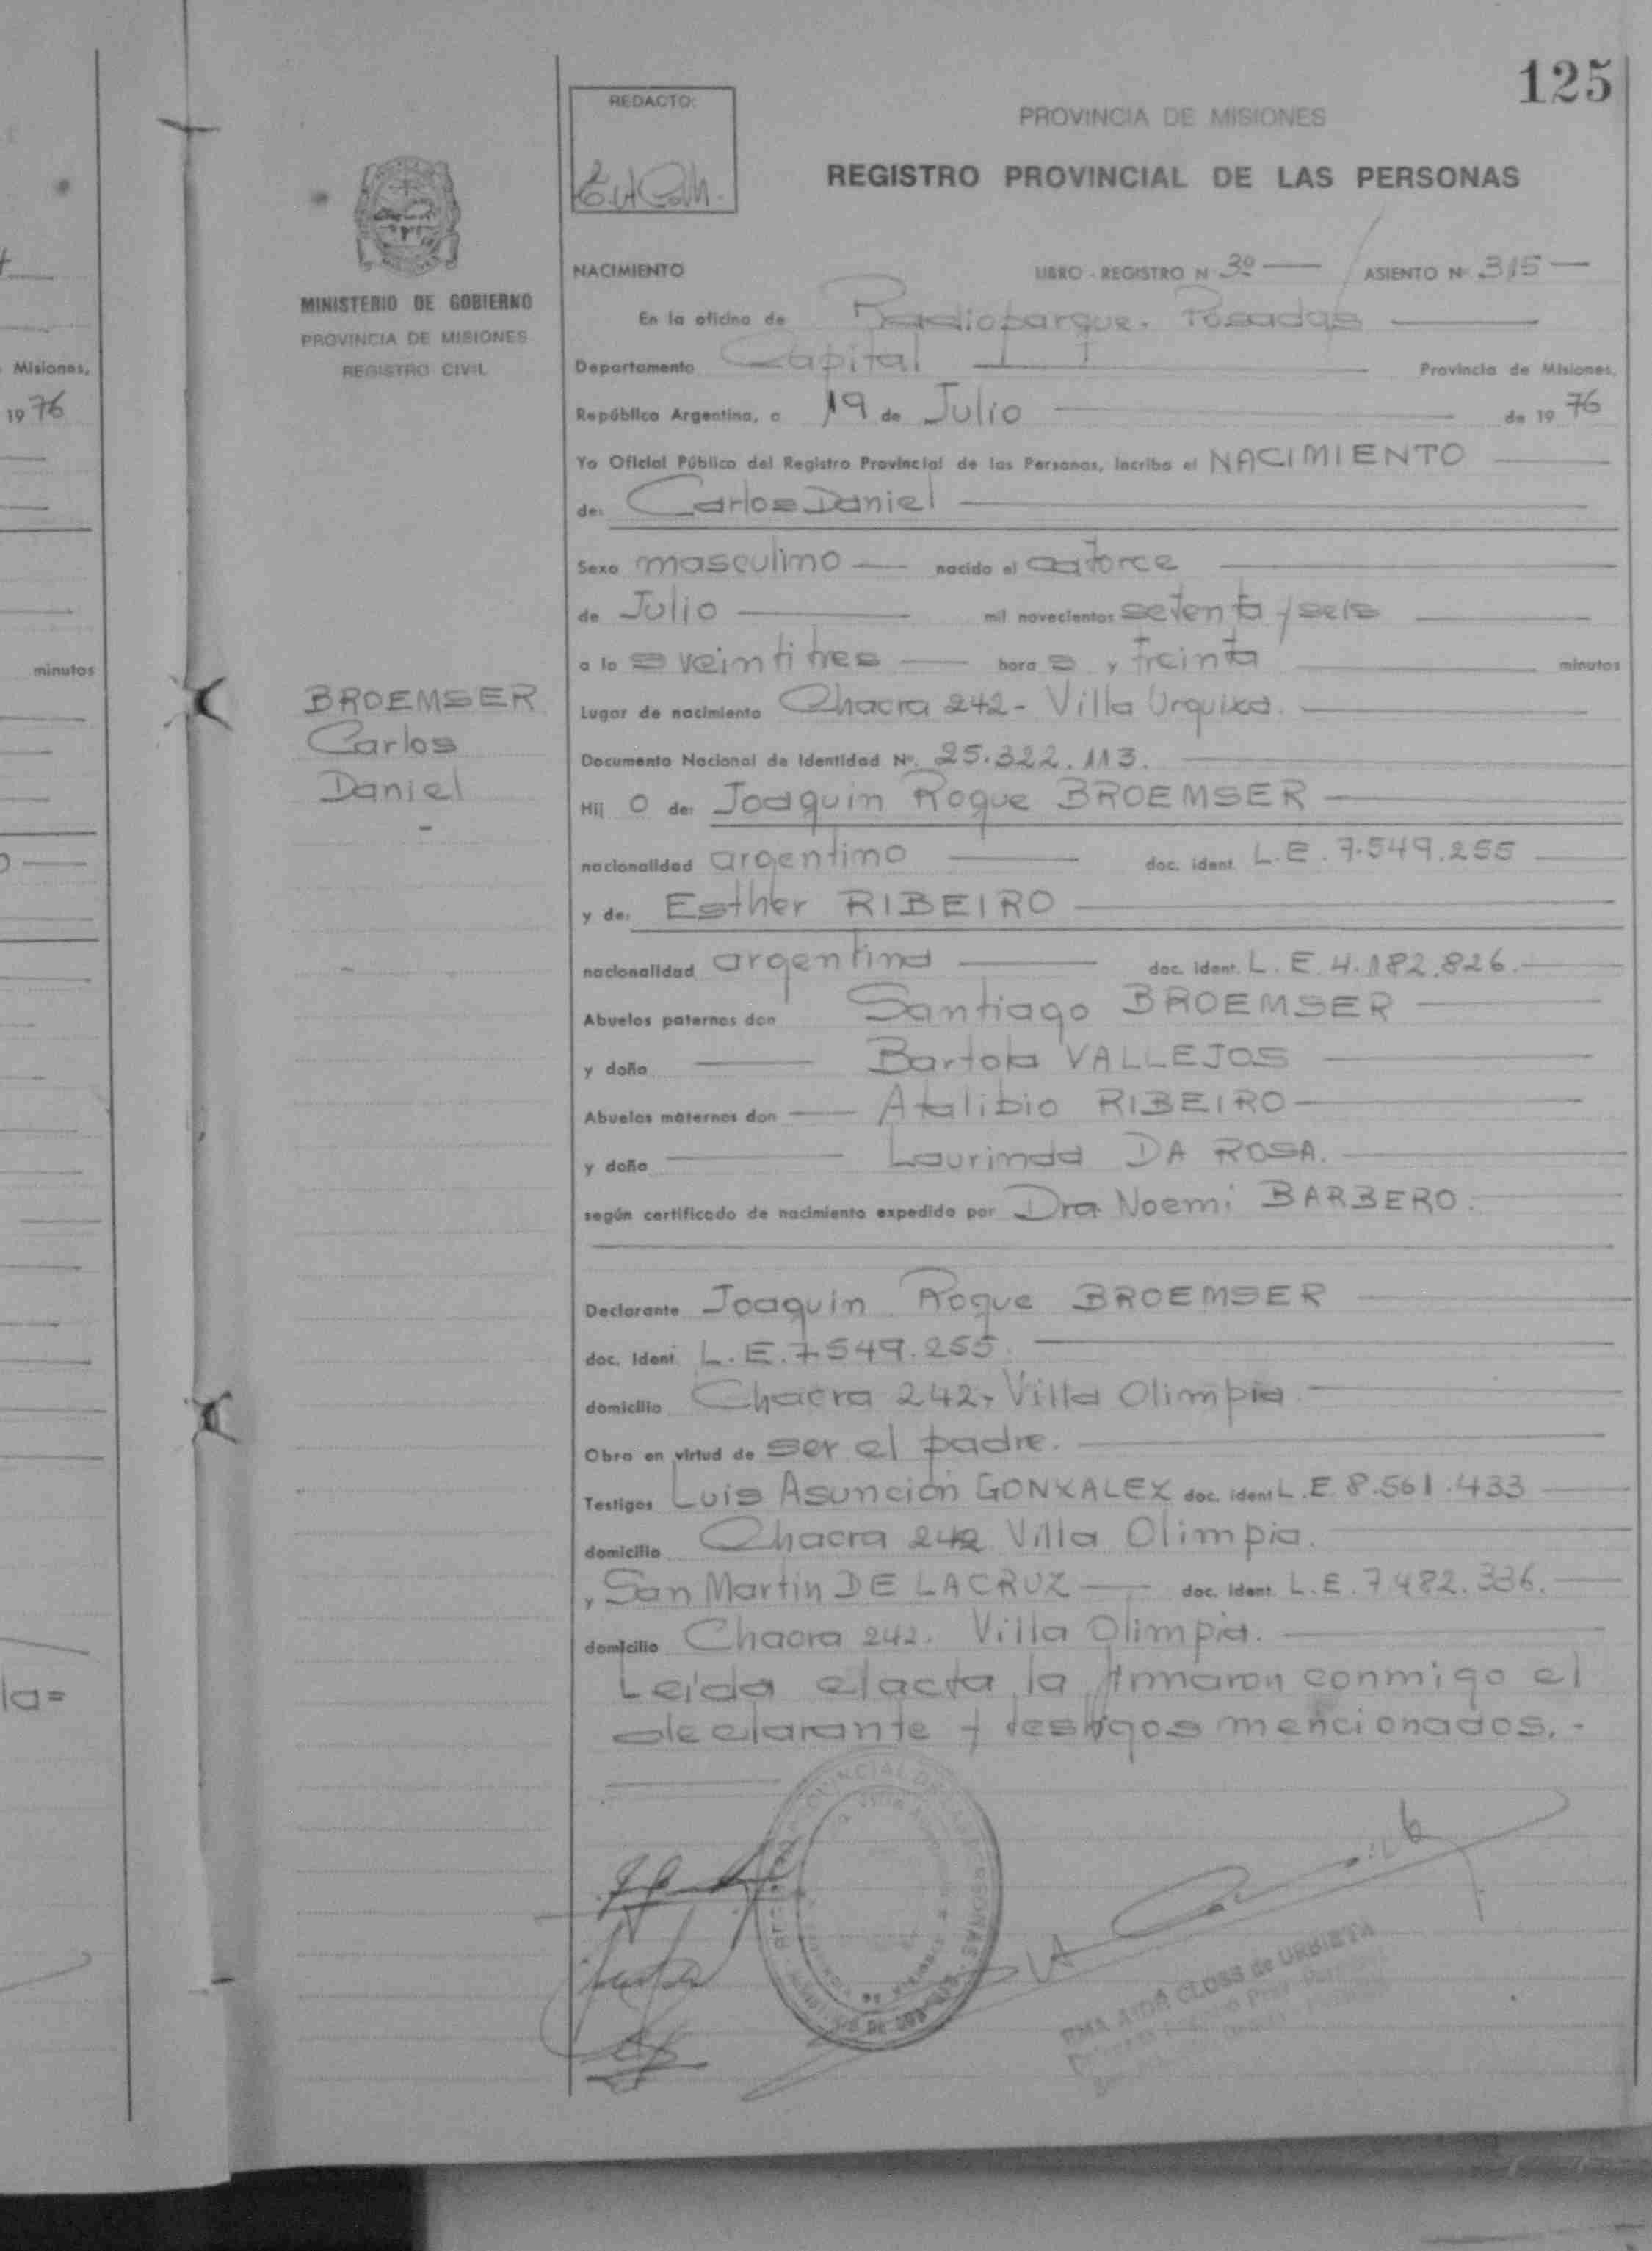 125
REDACTO:
PROVINCIA DE MISIONES
REGISTRO PROVINCIAL DE LAS PERSONAS
MINISTERIO DE GOBIERNO
PROVINCIA DE MISIONES
REGISTRO CIVIL
NACIMIENTO LIBRO - REGISTRO N 3º ASIENTO Nº 315
En la oficina de Radioparque. Posadas
Departamento Capital Provincia de Misiones,
República Argentina, a 19 de Julio de 19 76
Yo Oficial Público del Registro Provincial de las Personas, incribo el NACIMIENTO
de: Carlos Daniel
Sexo masculino nacido el catorce
de Julio mil novecientos setenta y seis
a la s veintitres hora s y treinta minutos
BROEMSER
Carlos
Daniel
Lugar de nacimiento Chacra 242 - Villa Urquixa.
Documento Nacional de Identidad Nº. 25.322.113.
Hij o de: Joaquin Roque BROEMSER
nacionalidad argentino doc. ident. L.E. 7.549.255
y de: Esther RIBEIRO
nacionalidad argentina doc. ident. L.E. 4.182.826.
Abuelos paternos don Santiago BROEMSER
y doña Bartola VALLEJOS
Abuelos maternos don Atalibio RIBEIRO
y doña Laurinda DA ROSA.
según certificado de nacimiento expedido por Dra. Noemi BARBERO.
Declarante Joaquin Roque BROEMSER
doc. Ident. L.E. 7549.255.
domicilio Chacra 242, Villa Olimpia
Obra en virtud de ser el padre.
Testigos Luis Asunción GONXALEX doc. ident L.E 8.561.433
domicilio Chacra 242 Villa Olimpia.
y San Martin DE LACRUZ doc. Ident. L.E. 7.482.336.
domicilio Chacra 242. Villa Olimpia.
Leida el acta, la firmaron conmigo el
declarante y testigos mencionados. -
AIDA CLOSS de URBIETA
Misiones,
19 76
minutos
la=